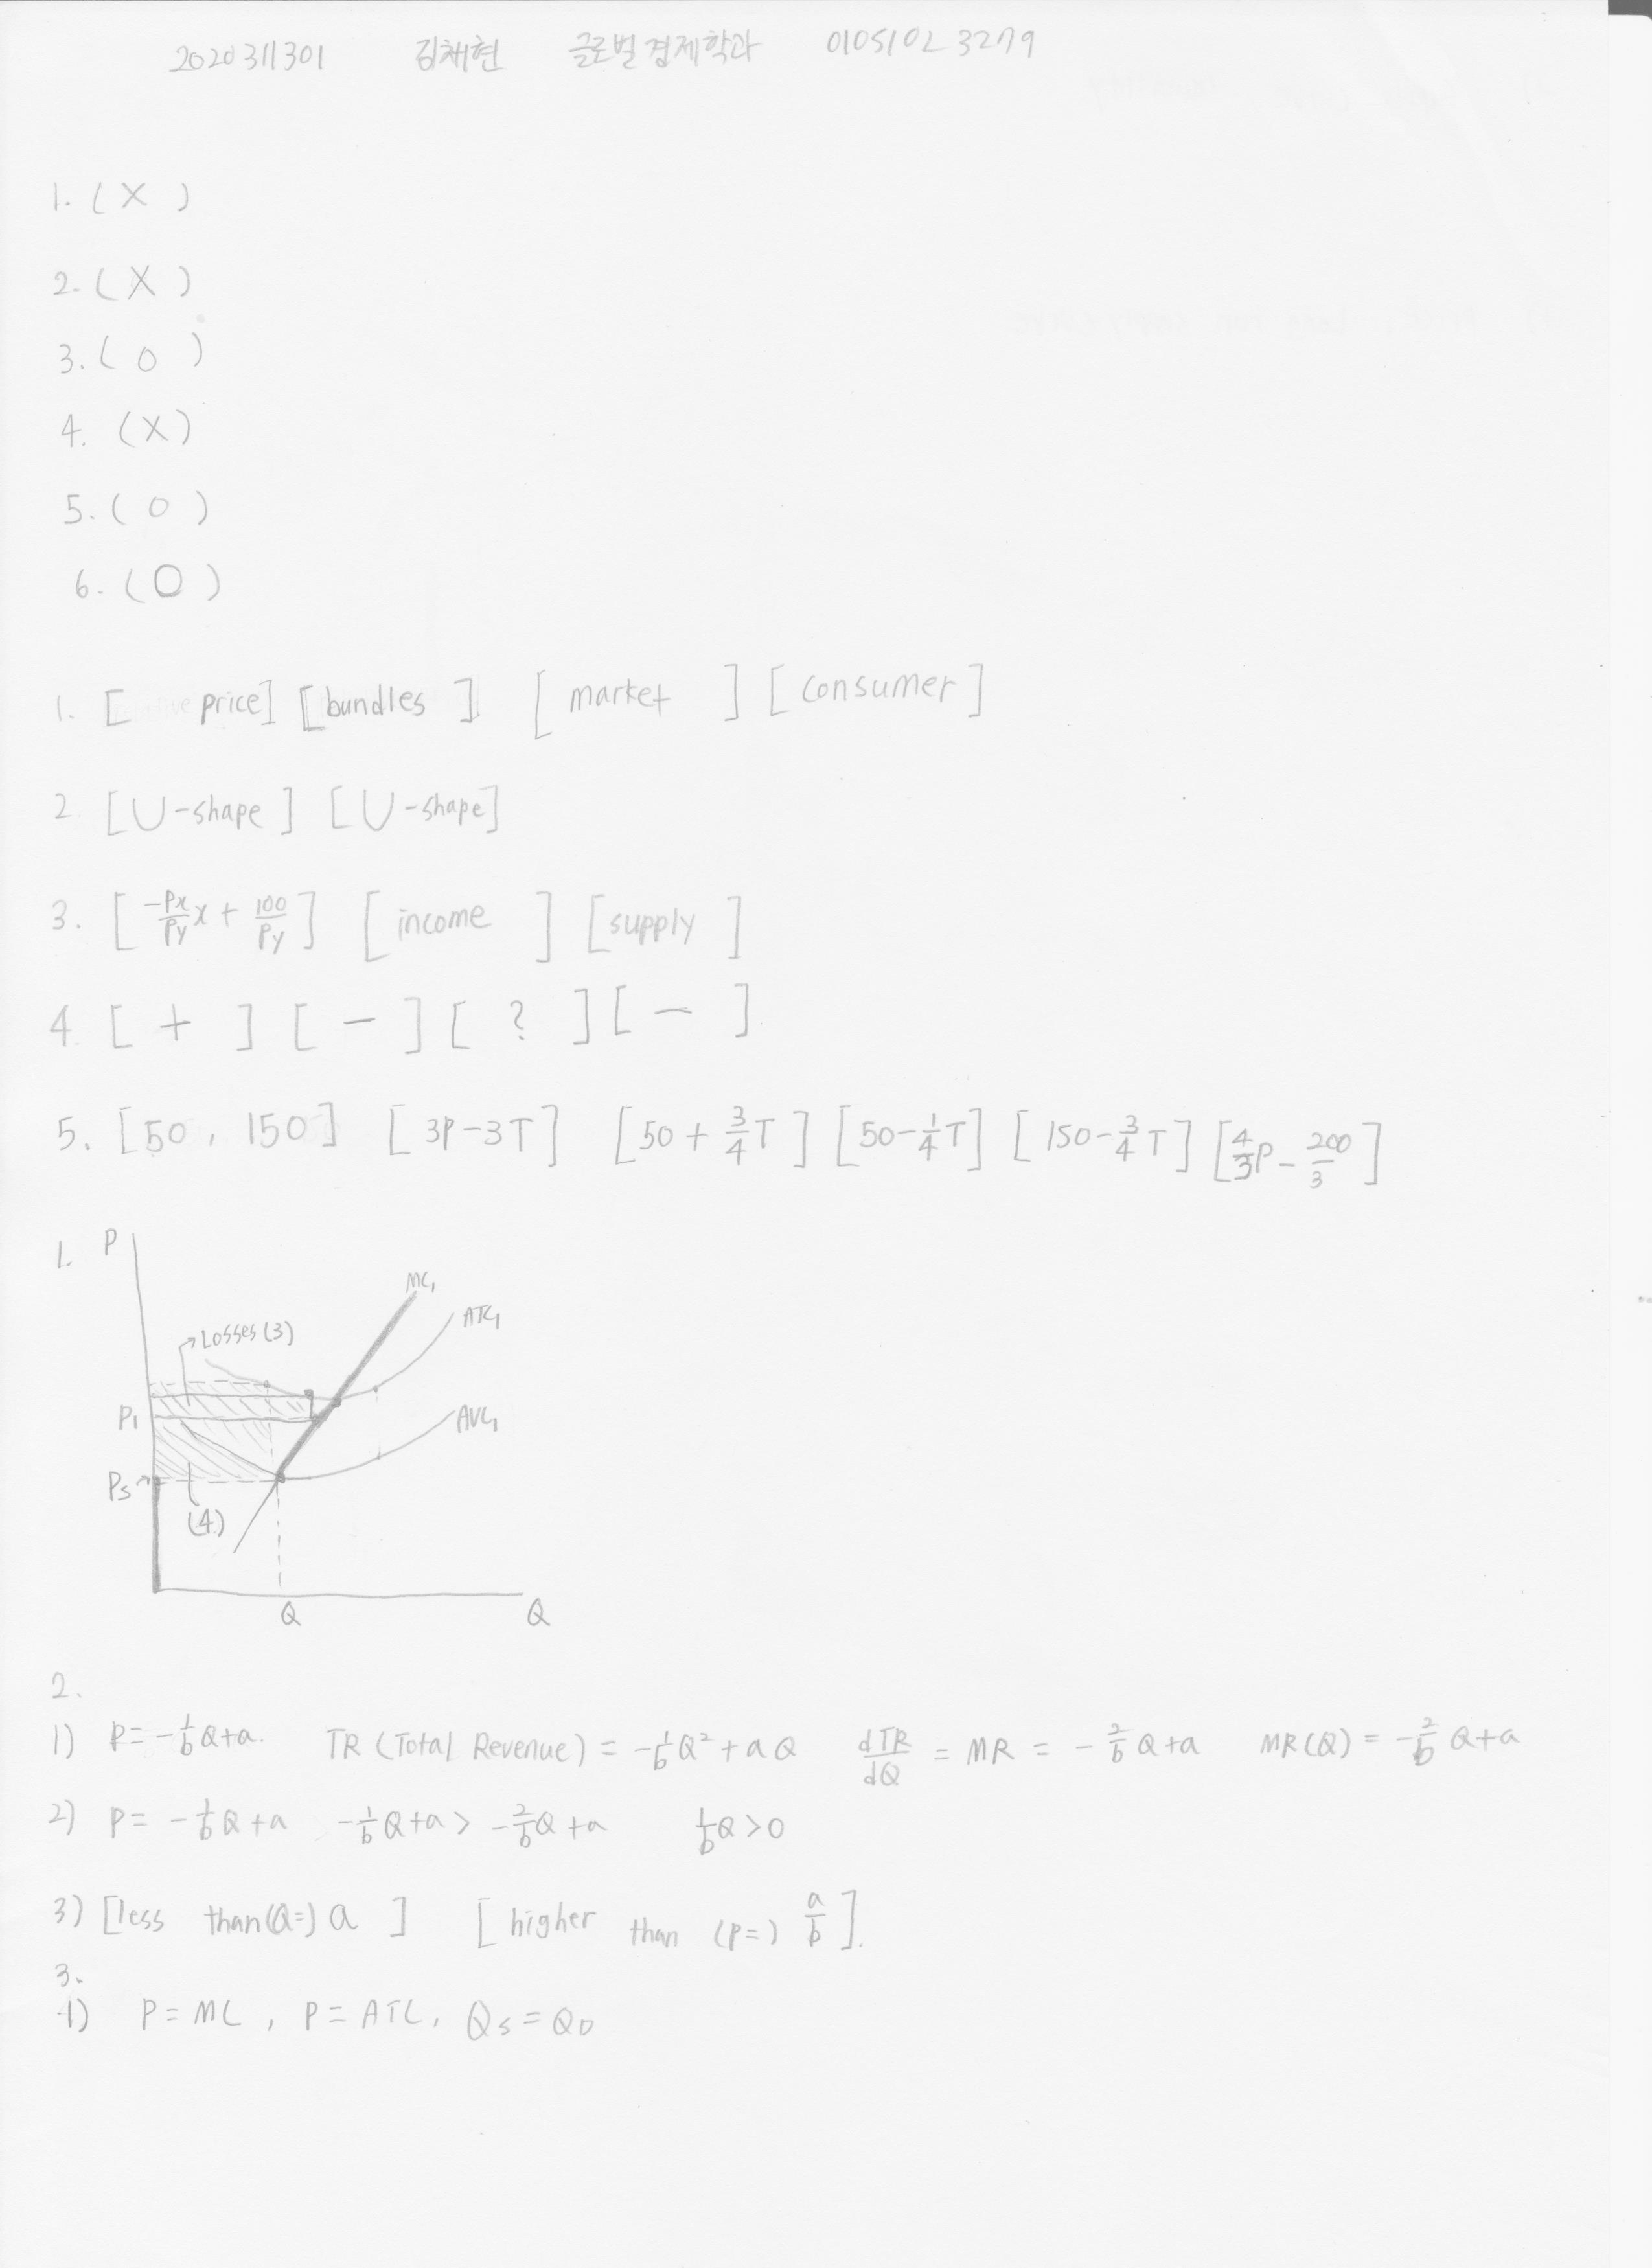 2020311301 김채현 글로벌경제학과 01051023279
1. ( X )
2. ( X )
3. ( O )
4. ( X )
5. ( O )
6. ( O )
1. [ price] [bundles ] [ market ] [ consumer ]
2. [U-shape ] [ U-shape]
3. [ -Px/Py x + 100/Py ] [ income ] [ supply ]
4. [ + ] [ - ] [ ? ] [ - ]
5. [50, 150] [ 3P-3T ] [50 + 3/4 T ] [50 - 1/4 T] [ 150 - 3/4 T ] [ 4/3 P - 200/3 ]
1. P
MC₁
ATC₁
Losses (3)
P₁
AVC₁
Ps
(4)
Q Q
2.
1) P = -1/b Q+a. TR (Total Revenue) = -1/b Q² + aQ dTR/dQ = MR = -2/b Q+a MR(Q) = -2/b Q+a
2) P = -1/b Q + a -1/b Q+a > -2/b Q + a 1/b Q > 0
3) [less than (Q=) a ] [ higher than (P=) a/b ].
3.
1) P = MC , P = ATC, Qs = QD